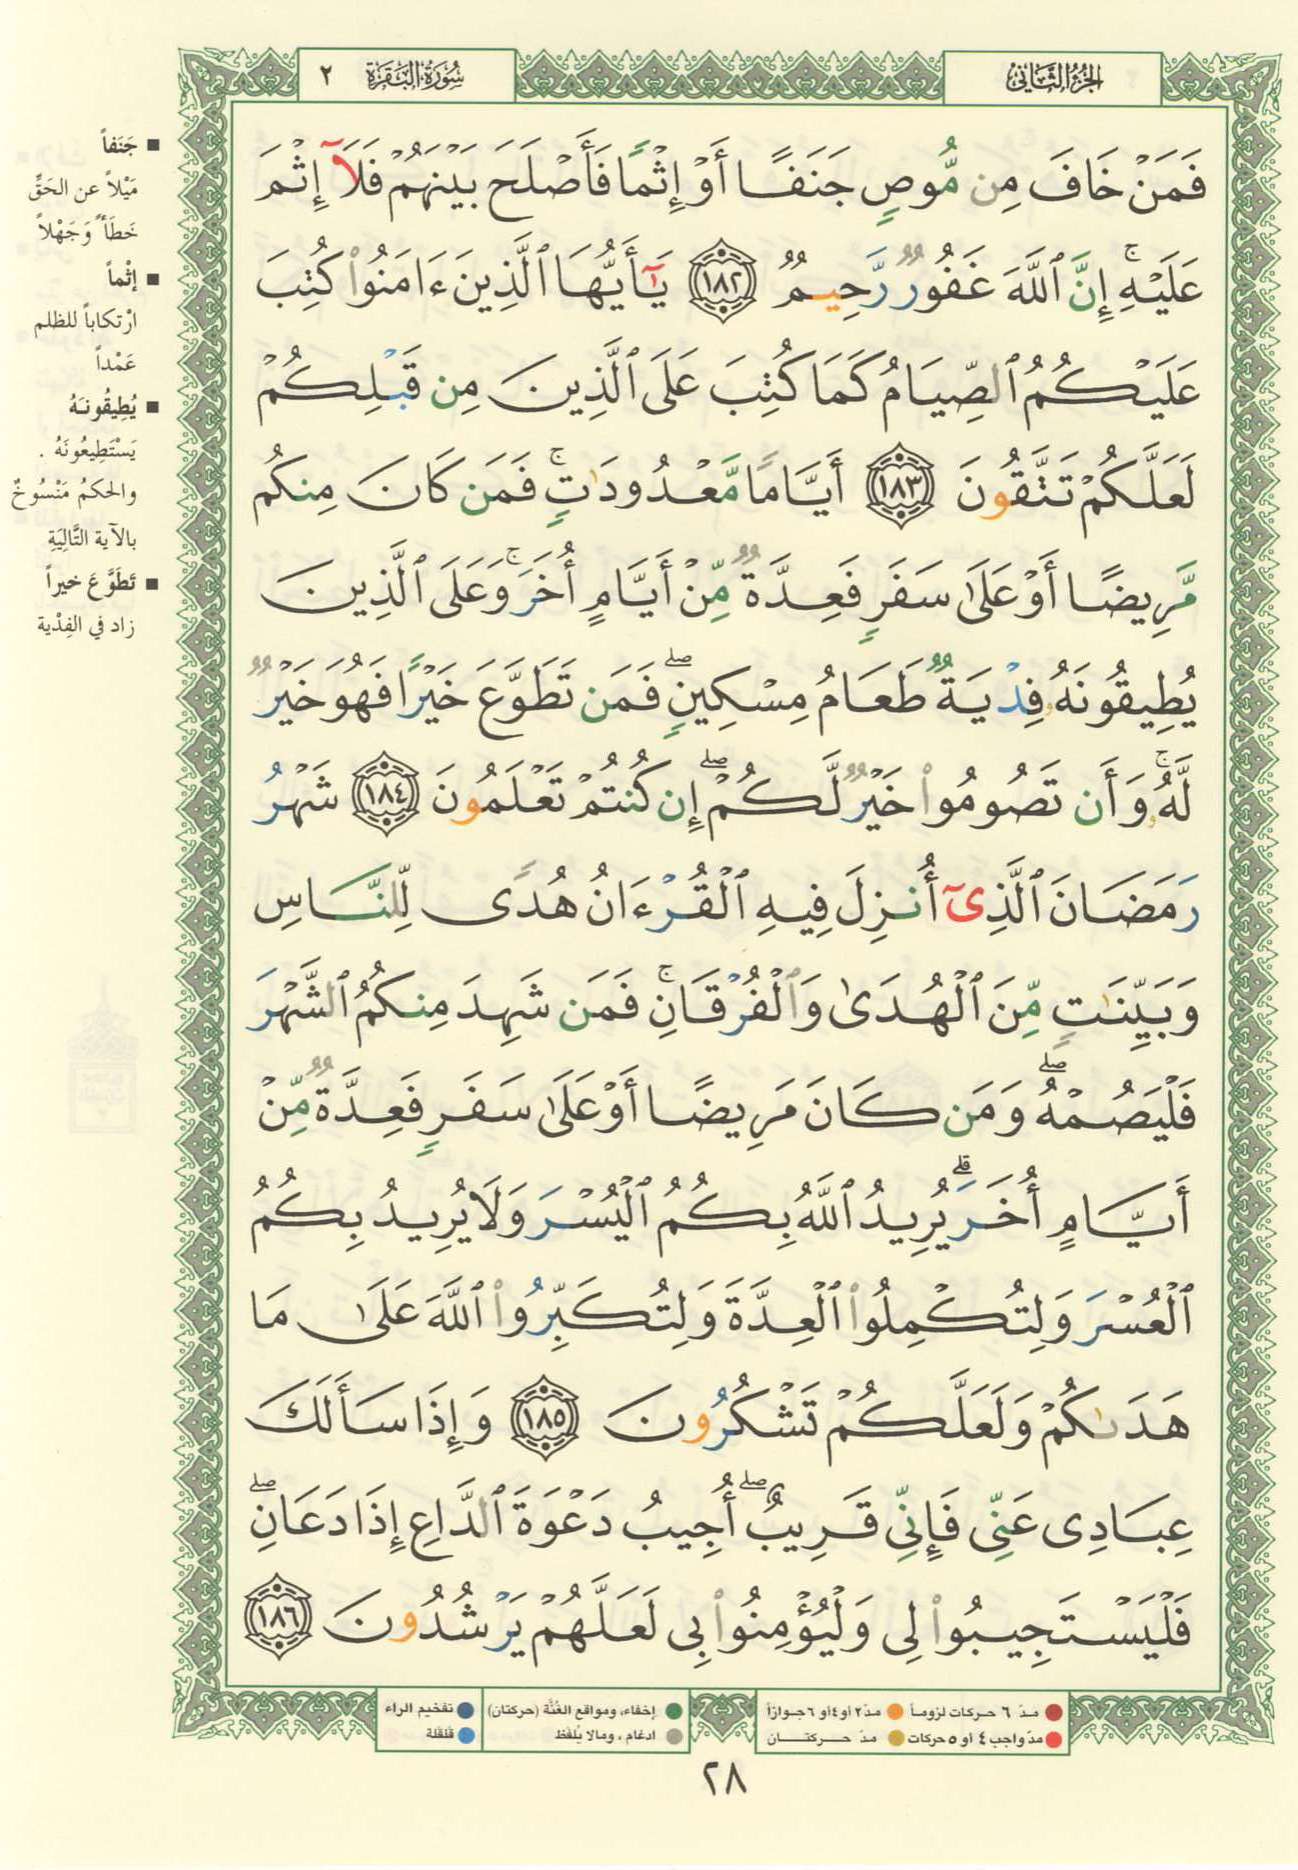 الجزء الثاني
سورة البقرة ٢
فَمَنْ خَافَ مِن مُّوصٍ جَنَفًا أَوْ إِثْمًا فَأَصْلَحَ بَيْنَهُمْ فَلَآ إِثْمَ
عَلَيْهِ ۚ إِنَّ ٱللَّهَ غَفُورٌ رَّحِيمٌ ١٨٢ يَـٰٓأَيُّهَا ٱلَّذِينَ ءَامَنُوا۟ كُتِبَ
عَلَيْكُمُ ٱلصِّيَامُ كَمَا كُتِبَ عَلَى ٱلَّذِينَ مِن قَبْلِكُمْ
لَعَلَّكُمْ تَتَّقُونَ ١٨٣ أَيَّامًا مَّعْدُودَٰتٍ ۚ فَمَن كَانَ مِنكُم
مَّرِيضًا أَوْ عَلَىٰ سَفَرٍ فَعِدَّةٌ مِّنْ أَيَّامٍ أُخَرَ ۚ وَعَلَى ٱلَّذِينَ
يُطِيقُونَهُۥ فِدْيَةٌ طَعَامُ مِسْكِينٍ ۖ فَمَن تَطَوَّعَ خَيْرًا فَهُوَ خَيْرٌ
لَّهُۥ ۚ وَأَن تَصُومُوا۟ خَيْرٌ لَّكُمْ ۖ إِن كُنتُمْ تَعْلَمُونَ ١٨٤ شَهْرُ
رَمَضَانَ ٱلَّذِىٓ أُنزِلَ فِيهِ ٱلْقُرْءَانُ هُدًى لِّلنَّاسِ
وَبَيِّنَـٰتٍ مِّنَ ٱلْهُدَىٰ وَٱلْفُرْقَانِ ۚ فَمَن شَهِدَ مِنكُمُ ٱلشَّهْرَ
فَلْيَصُمْهُ ۖ وَمَن كَانَ مَرِيضًا أَوْ عَلَىٰ سَفَرٍ فَعِدَّةٌ مِّنْ
أَيَّامٍ أُخَرَ ۗ يُرِيدُ ٱللَّهُ بِكُمُ ٱلْيُسْرَ وَلَا يُرِيدُ بِكُمُ
ٱلْعُسْرَ وَلِتُكْمِلُوا۟ ٱلْعِدَّةَ وَلِتُكَبِّرُوا۟ ٱللَّهَ عَلَىٰ مَا
هَدَىٰكُمْ وَلَعَلَّكُمْ تَشْكُرُونَ ١٨٥ وَإِذَا سَأَلَكَ
عِبَادِى عَنِّى فَإِنِّى قَرِيبٌ ۖ أُجِيبُ دَعْوَةَ ٱلدَّاعِ إِذَا دَعَانِ ۖ
فَلْيَسْتَجِيبُوا۟ لِى وَلْيُؤْمِنُوا۟ بِى لَعَلَّهُمْ يَرْشُدُونَ ١٨٦
■ جَنَفاً
مَيْلاً عن الحَقِّ
خَطَأً وَجَهْلاً
■ إثْماً
ارْتكاباً للظلم
عَمْداً
■ يُطِيقُونَهُ
يَسْتَطِيعُونَهُ .
والحكمُ مَنْسُوخٌ
بالآية التَّالِيَةِ
■ تَطَوَّعَ خيراً
زاد في الفِدْية
مدّ ٦ حركات لزوماً مدّ ٢ أو ٤ أو ٦ جوازاً
مدّ واجب ٤ أو ٥ حركات مدّ حركتان
إخفاء، ومواقع الغُنَّة (حركتان)
ادغام ، ومالا يُلفَظ
تفخيم الراء
قلقلة
٢٨